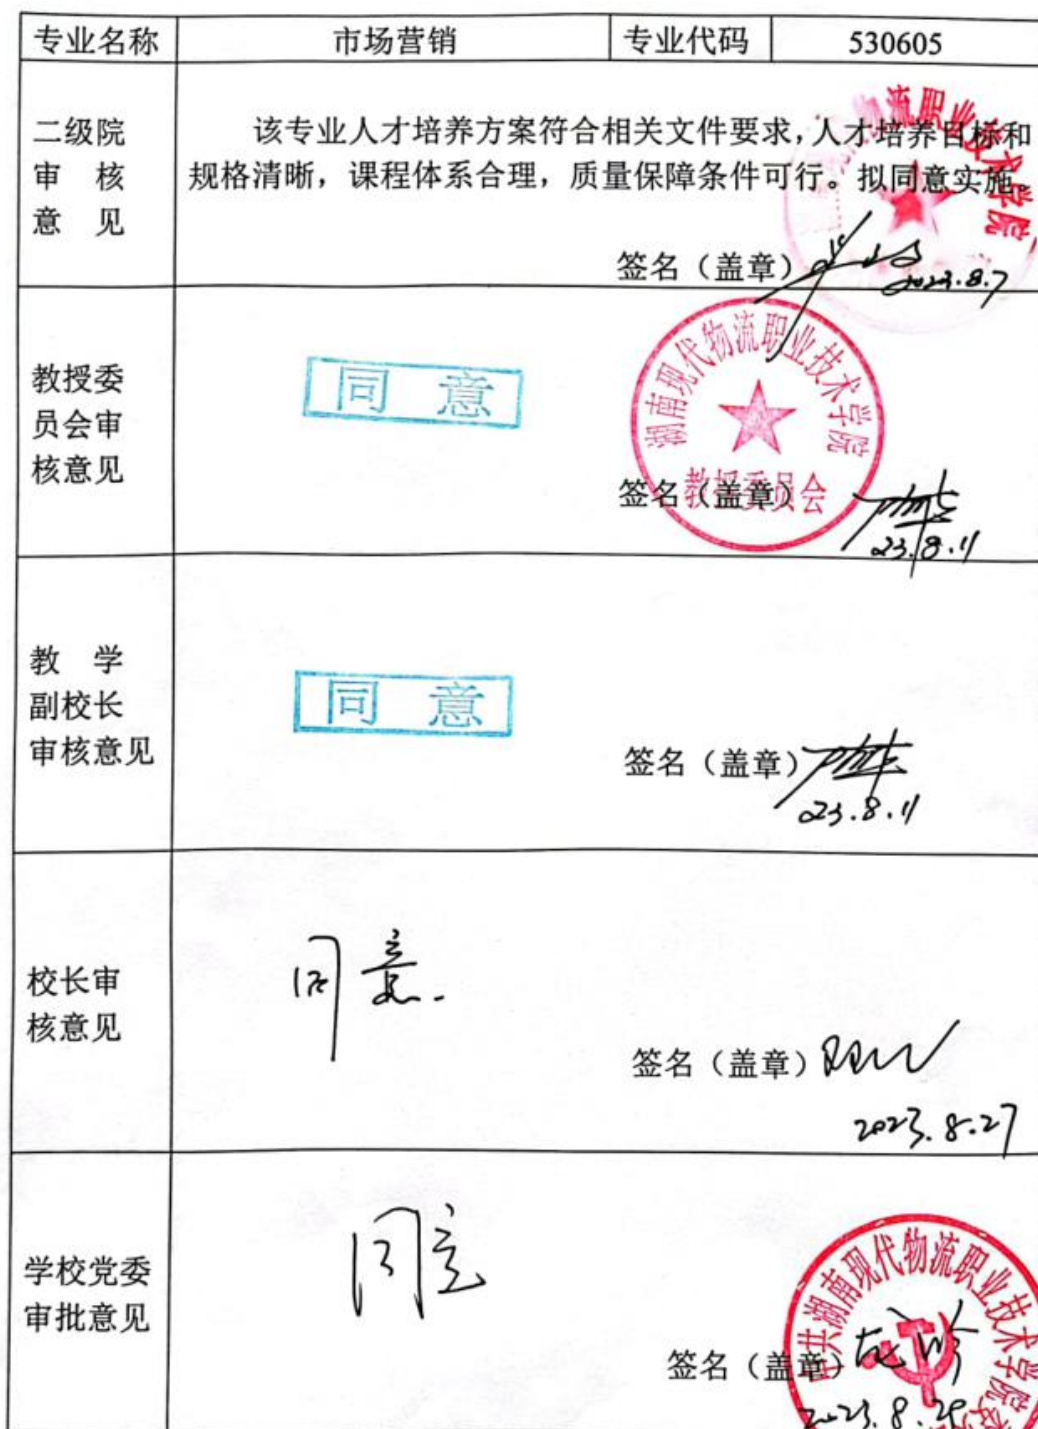 专业名称 市场营销 专业代码 530605
二级院
审 核
意 见
该专业人才培养方案符合相关文件要求，人才培养目标和
规格清晰，课程体系合理，质量保障条件可行。拟同意实施。
物流职业技术学院
签名（盖章）
2023.8.7
教授委
员会审
核意见
同 意
湖南现代物流职业技术学院
教授委员会
签名（盖章）
23.8.11
教 学
副校长
审核意见
同 意
签名（盖章）
23.8.11
校长审
核意见
同意.
签名（盖章）
2023.8.27
学校党委
审批意见
同意
中共湖南现代物流职业技术学院
签名（盖章）